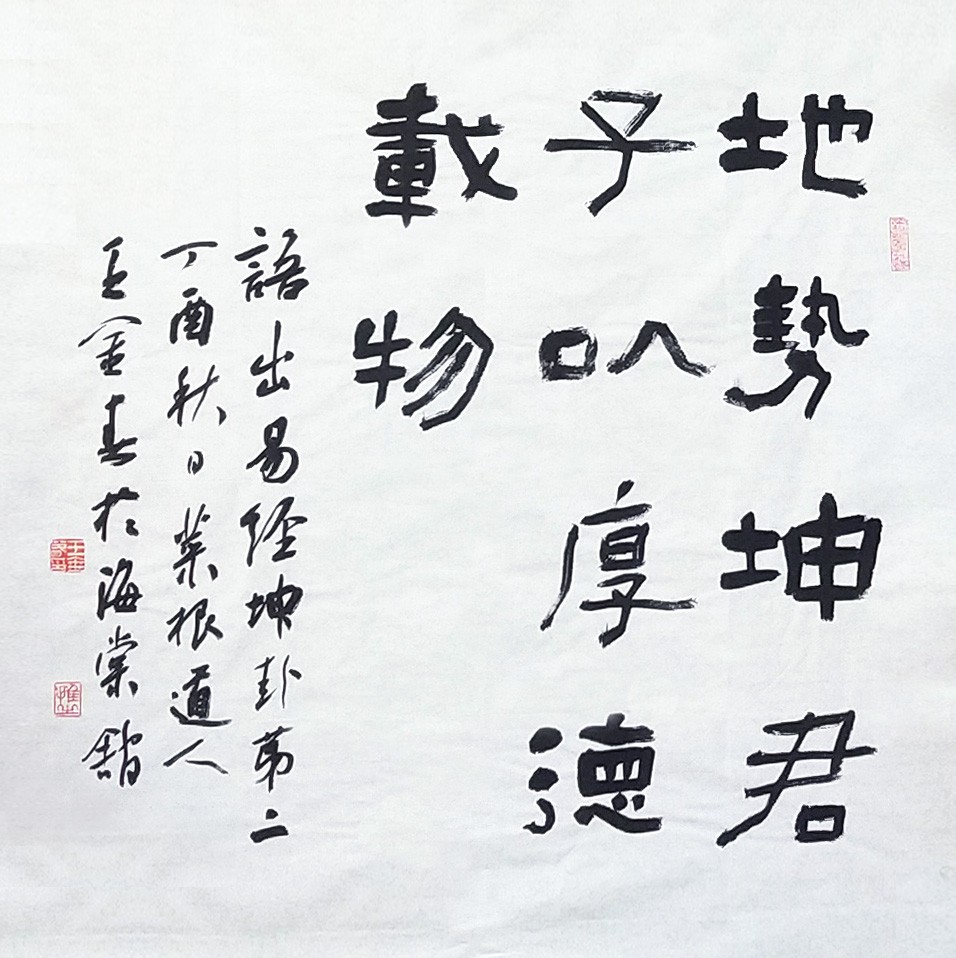 地勢坤君
子以厚德
載物
語出易經坤卦第二
丁酉秋日菜根道人
王金春於海棠館